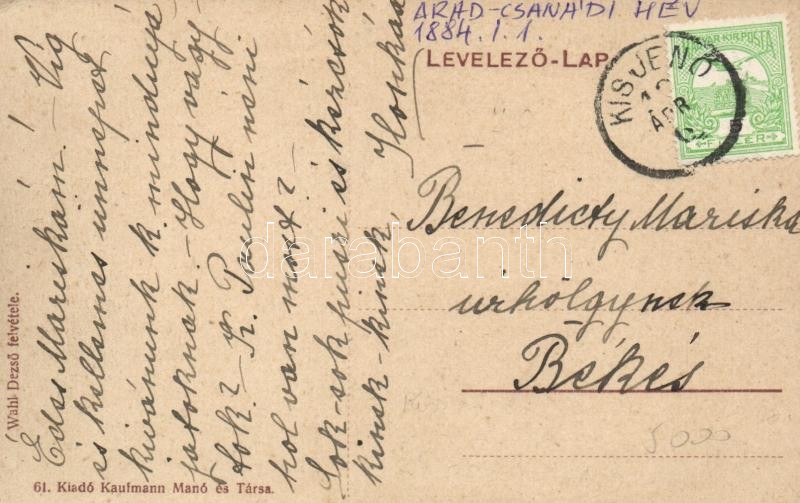 ARAD-CSANÁDI HÉV
1884. I. 1.
LEVELEZŐ-LAP
KISJENŐ
ÁPR
MAGYAR KIR. POSTA
FILLÉR
Édes Mariskám. – Víg
és kellemes ünnepet
kívánunk k. mindnyá-
jatoknak. – Hogy vagy-
tok? – K. Paulin néni
hol van most? –
Sok-sok puszi és kézcsók
kinek-kinek,
Ilonka
Benedicty Mariska
úrhölgynek
Békés
5000
Wahl Dezső felvétele.
61. Kiadó Kaufmann Manó és Társa.
darabanth